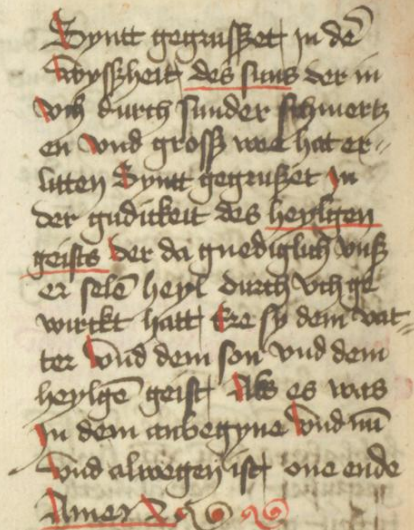 Syntt gegrusszet in dē
wyssheit des suns der in
vch durch sunder schmertz
en vnd gross wee hat er-
litten Syntt gegruszet in
der guditkeit des heyligen
geists der da gnediglich vnss
er selē heyl durch vch ge
wirckt hatt Ere sy dem vat-
ter vnd dem son vnd dem
heylgē geist Als es was
in dem anbegyne vnd nū
vnd alwegen ist one ende
Amen